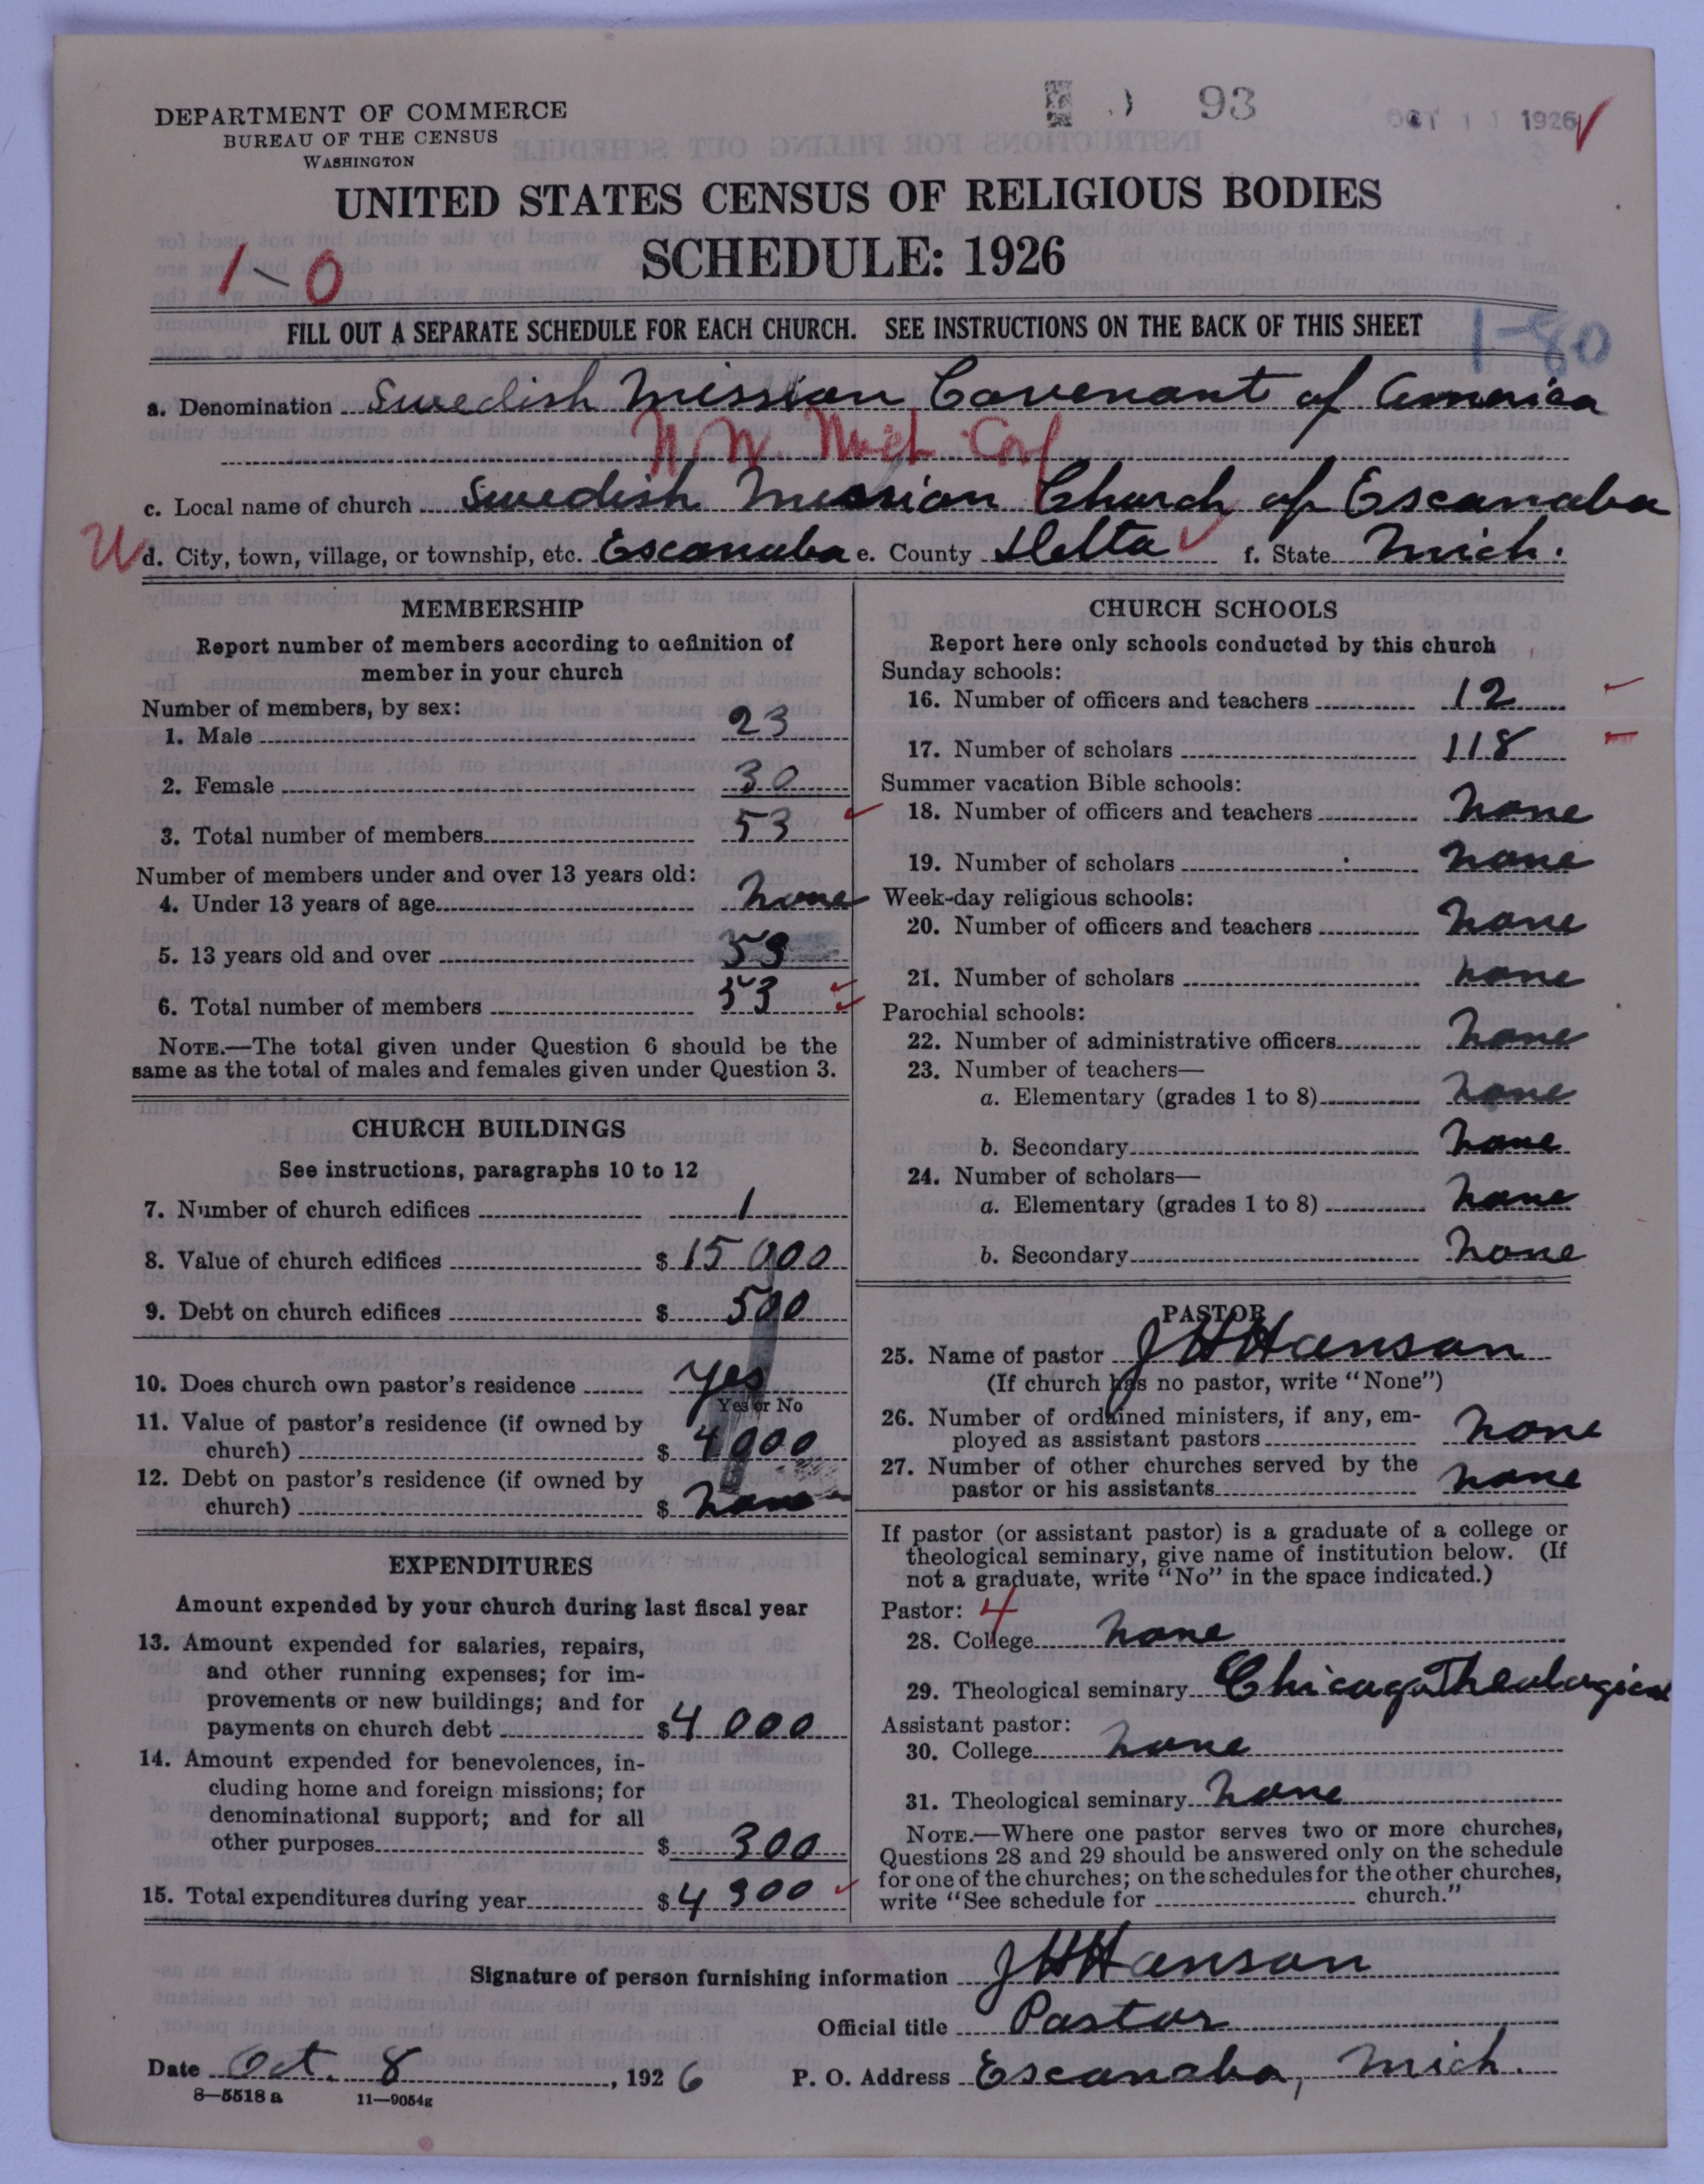 93
OCT 11 1926
DEPARTMENT OF COMMERCE
BUREAU OF THE CENSUS
WASHINGTON
UNITED STATES CENSUS OF RELIGIOUS BODIES
SCHEDULE: 1926
1-0
FILL OUT A SEPARATE SCHEDULE FOR EACH CHURCH. SEE INSTRUCTIONS ON THE BACK OF THIS SHEET
1-80
a. Denomination Swedish Mission Covenant of America
N. W. Mich Conf
c. Local name of church Swedish Mission Church of Escanaba
U d. City, town, village, or township, etc. Escanaba e. County Delta f. State Mich.
MEMBERSHIP
Report number of members according to definition of
member in your church
Number of members, by sex:
1. Male 23
2. Female 30
3. Total number of members 53
Number of members under and over 13 years old:
4. Under 13 years of age none
5. 13 years old and over 53
6. Total number of members 53
NOTE.—The total given under Question 6 should be the
same as the total of males and females given under Question 3.
CHURCH BUILDINGS
See instructions, paragraphs 10 to 12
7. Number of church edifices 1
8. Value of church edifices $ 15000
9. Debt on church edifices $ 500
10. Does church own pastor's residence yes
Yes or No
11. Value of pastor's residence (if owned by
church) $ 4000
12. Debt on pastor's residence (if owned by
church) $ none
EXPENDITURES
Amount expended by your church during last fiscal year
13. Amount expended for salaries, repairs,
and other running expenses; for im-
provements or new buildings; and for
payments on church debt $ 4000
14. Amount expended for benevolences, in-
cluding home and foreign missions; for
denominational support; and for all
other purposes $ 300
15. Total expenditures during year $ 4300
CHURCH SCHOOLS
Report here only schools conducted by this church
Sunday schools:
16. Number of officers and teachers 12
17. Number of scholars 118
Summer vacation Bible schools:
18. Number of officers and teachers none
19. Number of scholars none
Week-day religious schools:
20. Number of officers and teachers none
21. Number of scholars none
Parochial schools:
22. Number of administrative officers none
23. Number of teachers—
a. Elementary (grades 1 to 8) none
b. Secondary none
24. Number of scholars—
a. Elementary (grades 1 to 8) none
b. Secondary none
PASTOR
25. Name of pastor J H Hanson
(If church has no pastor, write "None")
26. Number of ordained ministers, if any, em-
ployed as assistant pastors none
27. Number of other churches served by the
pastor or his assistants none
If pastor (or assistant pastor) is a graduate of a college or
theological seminary, give name of institution below. (If
not a graduate, write "No" in the space indicated.)
Pastor: 4
28. College none
29. Theological seminary Chicago Theological
Assistant pastor:
30. College none
31. Theological seminary none
NOTE.—Where one pastor serves two or more churches,
Questions 28 and 29 should be answered only on the schedule
for one of the churches; on the schedules for the other churches,
write "See schedule for church."
Signature of person furnishing information J H Hanson
Official title Pastor
Date Oct. 8, 1926 P. O. Address Escanaba, Mich.
8—5518 a 11—9054g